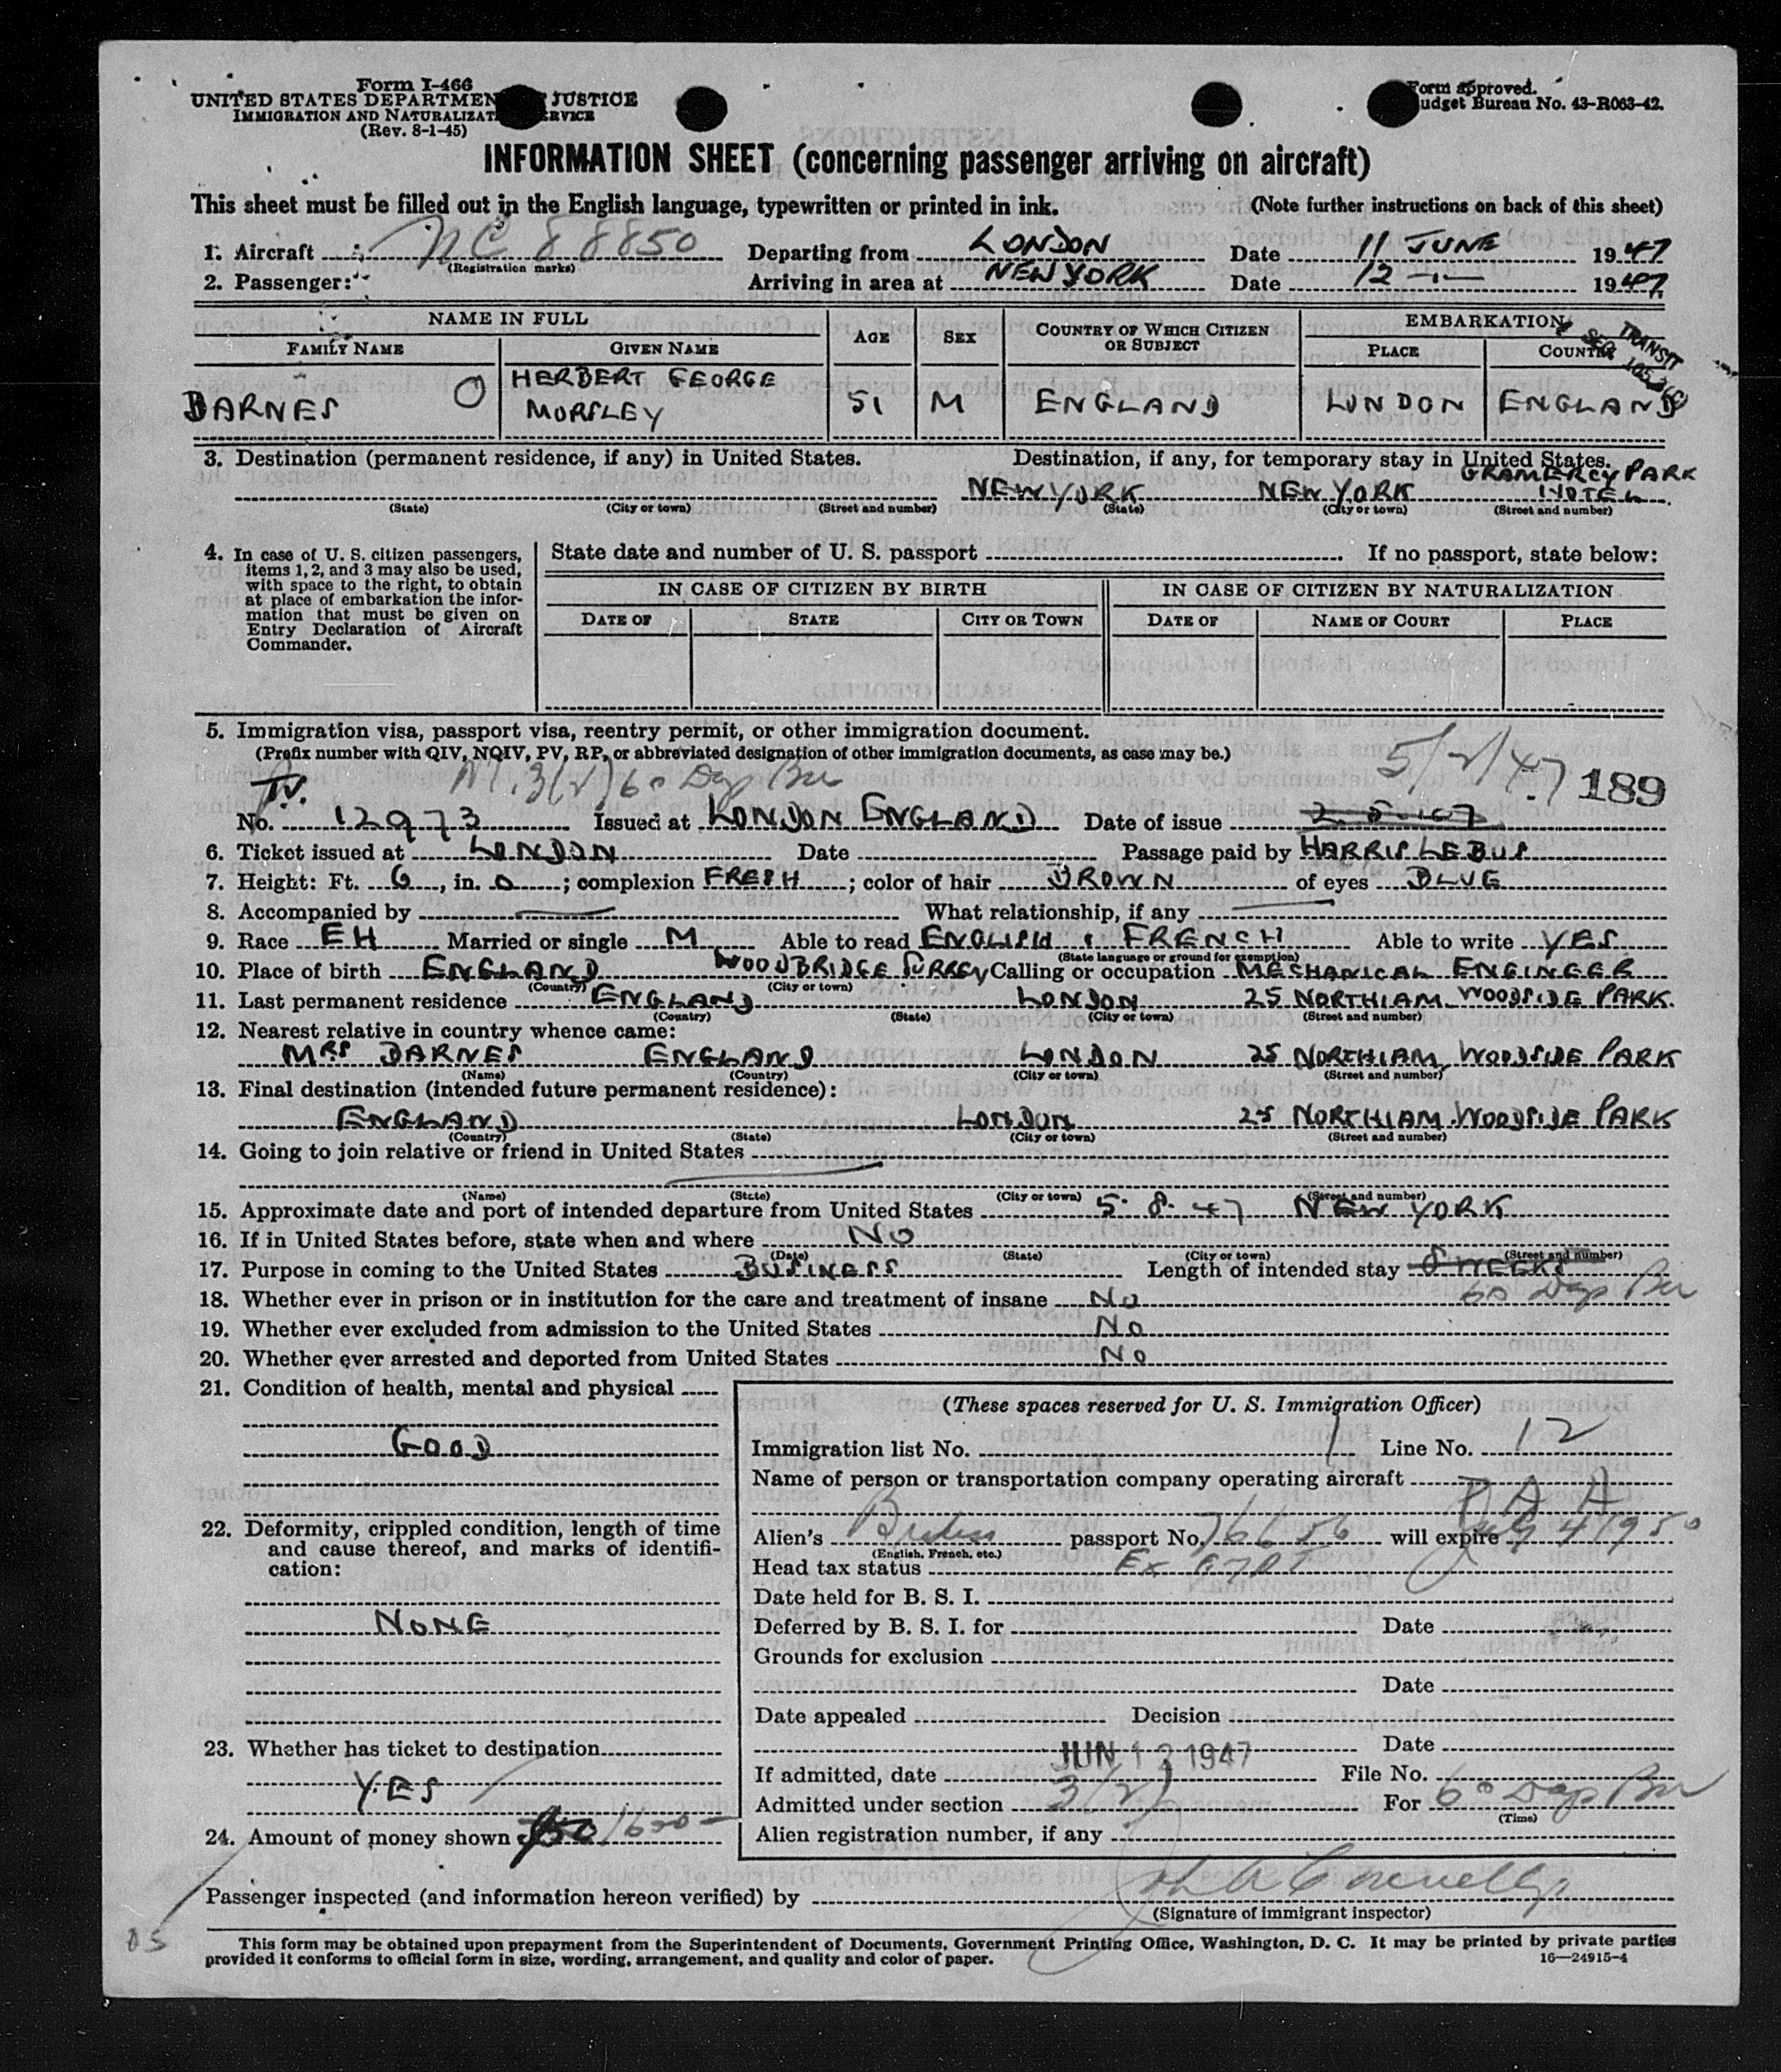 Form I-466
UNITED STATES DEPARTMEN JUSTICE
IMMIGRATION AND NATURALIZAT ERVICE
(Rev. 8-1-45)
Form approved.
udget Bureau No. 43-R063-42.
INFORMATION SHEET (concerning passenger arriving on aircraft)
This sheet must be filled out in the English language, typewritten or printed in ink. (Note further instructions on back of this sheet)
1. Aircraft NC 88850 Departing from LONDON Date 11 JUNE 1947
(Registration marks)
2. Passenger: Arriving in area at NEW YORK Date 12 1947
NAME IN FULL AGE SEX COUNTRY OF WHICH CITIZEN OR SUBJECT EMBARKATION
FAMILY NAME GIVEN NAME PLACE COUNTRY
TRANSIT
SEC.
BARNES HERBERT GEORGE MORSLEY 51 M ENGLAND LONDON ENGLAND
3. Destination (permanent residence, if any) in United States. Destination, if any, for temporary stay in United States.
NEW YORK NEW YORK GRAMERCY PARK HOTEL
(State) (City or town) (Street and number) (State) (City or town) (Street and number)
4. In case of U. S. citizen passengers, items 1, 2, and 3 may also be used, with space to the right, to obtain at place of embarkation the infor-
mation that must be given on Entry Declaration of Aircraft Commander.
State date and number of U. S. passport If no passport, state below:
IN CASE OF CITIZEN BY BIRTH IN CASE OF CITIZEN BY NATURALIZATION
DATE OF STATE CITY OR TOWN DATE OF NAME OF COURT PLACE
5. Immigration visa, passport visa, reentry permit, or other immigration document.
(Prefix number with QIV, NQIV, PV, RP, or abbreviated designation of other immigration documents, as case may be.)
3(2) 60 Day 5/2/47 189
No. 12973 Issued at LONDON ENGLAND Date of issue
6. Ticket issued at LONDON Date Passage paid by HARRIS LEBUS
7. Height: Ft. 6, in. 0; complexion FRESH; color of hair BROWN of eyes BLUE
8. Accompanied by What relationship, if any
9. Race EH Married or single M Able to read ENGLISH & FRENCH Able to write YES
(State language or ground for exemption)
10. Place of birth ENGLAND WOODBRIDGE SURREY Calling or occupation MECHANICAL ENGINEER
(Country) (City or town)
11. Last permanent residence ENGLAND LONDON 25 NORTHIAM WOODSIDE PARK.
(Country) (State) (City or town) (Street and number)
12. Nearest relative in country whence came:
MRS BARNES ENGLAND LONDON 25 NORTHIAM WOODSIDE PARK
(Name) (Country) (City or town) (Street and number)
13. Final destination (intended future permanent residence):
ENGLAND LONDON 25 NORTHIAM WOODSIDE PARK
(Country) (State) (City or town) (Street and number)
14. Going to join relative or friend in United States
(Name) (State) (City or town) (Street and number)
15. Approximate date and port of intended departure from United States 5. 8. 47 NEW YORK
16. If in United States before, state when and where NO
(Date) (State) (City or town) (Street and number)
17. Purpose in coming to the United States BUSINESS Length of intended stay 8 WEEKS
60 Day
18. Whether ever in prison or in institution for the care and treatment of insane NO
19. Whether ever excluded from admission to the United States NO
20. Whether ever arrested and deported from United States NO
21. Condition of health, mental and physical
GOOD
22. Deformity, crippled condition, length of time and cause thereof, and marks of identifi-
cation:
NONE
23. Whether has ticket to destination
YES
24. Amount of money shown
(These spaces reserved for U. S. Immigration Officer)
Immigration list No. 1 Line No. 12
Name of person or transportation company operating aircraft
PAA
Alien's British passport No. 76656 will expire July 4 1950
(English, French, etc.)
Head tax status Ex
Date held for B. S. I.
Deferred by B. S. I. for Date
Grounds for exclusion
Date
Date appealed Decision
Date
If admitted, date JUN 12 1947 File No.
Admitted under section 3(2) For 60 Day
(Time)
Alien registration number, if any
Passenger inspected (and information hereon verified) by
(Signature of immigrant inspector)
This form may be obtained upon prepayment from the Superintendent of Documents, Government Printing Office, Washington, D. C. It may be printed by private parties
provided it conforms to official form in size, wording, arrangement, and quality and color of paper. 16—24915-4